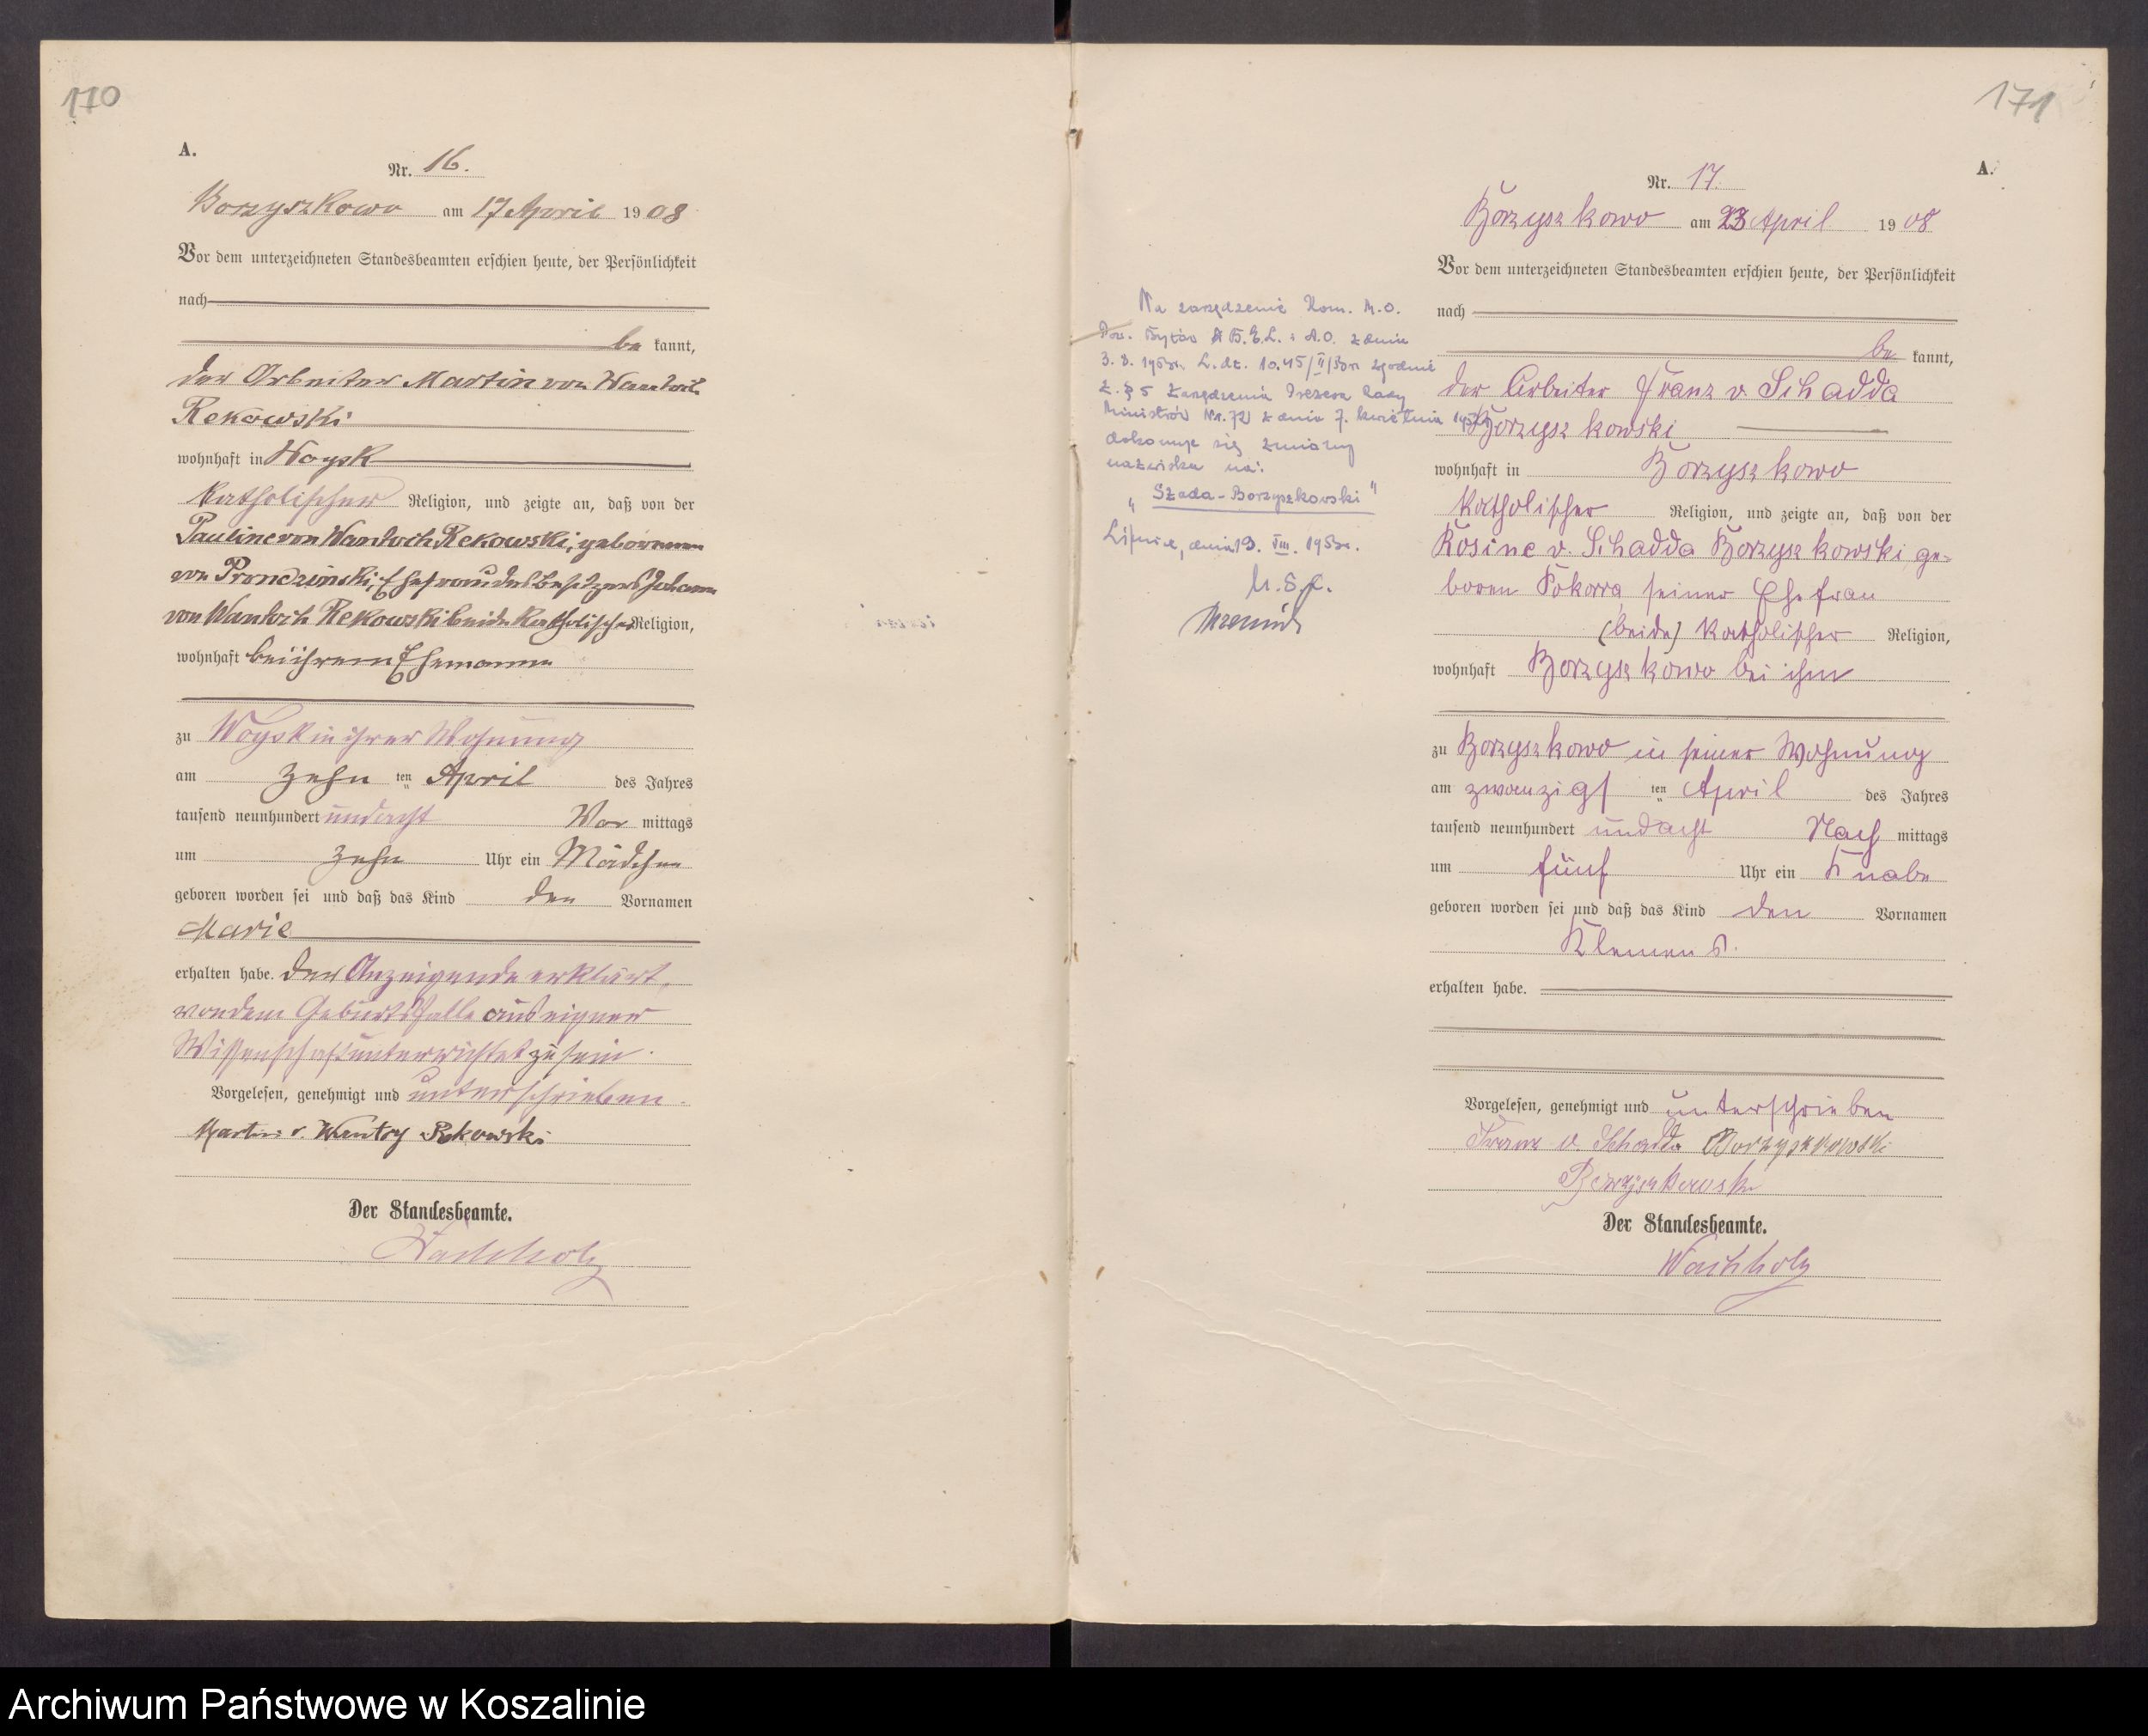 170
A.
Nr. 16.
Borzyszkowo am 17 April 1908
Vor dem unterzeichneten Standesbeamten erschien heute, der Persönlichkeit
nach
be kannt,
der Arbeiter Martin von Wantoch
Rekowski
wohnhaft in Woysk
katholischer Religion, und zeigte an, daß von der
Pauline von Wantoch Rekowski, geborenen
von Prondzinski, Ehefrau des Besitzers Johann
von Wantoch Rekowski beide katholischer Religion,
wohnhaft bei ihrem Ehemanne
zu Woysk in ihrer Wohnung
am zehn ten April des Jahres
tausend neunhundert und acht Vor mittags
um zehn Uhr ein Mädchen
geboren worden sei und daß das Kind den Vornamen
Marie
erhalten habe. Der Anzeigende erklärt,
von dem Geburtsfalle aus eigner
Wissenschaft unterrichtet zu sein.
Vorgelesen, genehmigt und unterschrieben.
Martin v. Wantoch Rekowski
Der Standesbeamte.
Wachholz
171
A.
Nr. 17.
Borzyszkowo am 23 April 1908
Vor dem unterzeichneten Standesbeamten erschien heute, der Persönlichkeit
nach
be kannt,
der Arbeiter Franz v. Schadda
Borzyszkowski
wohnhaft in Borzyszkowo
katholischer Religion, und zeigte an, daß von der
Rosine v. Schadda Borzyszkowski ge-
boren Pokorra seiner Ehefrau
(beide) katholischer Religion,
wohnhaft Borzyszkowo bei ihm
zu Borzyszkowo in seiner Wohnung
am zwanzigst ten April des Jahres
tausend neunhundert und acht Nach mittags
um fünf Uhr ein Knabe
geboren worden sei und daß das Kind den Vornamen
Klemens.
erhalten habe.
Vorgelesen, genehmigt und unterschrieben
Franz v. Schadda Borzyszkowski
Borzyszkowski
Der Standesbeamte.
Wachholz
Na zarządzenie Kom. M.O.
Pow. Bytów z dnia
3. 8. 195 L. dz. 10.45/II/ zgodnie
z § 5 Zarządzenia Prezesa Rady
Ministrów Nr. 72 z dnia 7. kwietnia 195
dokonuje się zmiany
nazwiska na:
„Szada-Borzyszkowski"
Lipnica, dnia 19. VIII. 195
U.S.C.
Archiwum Państwowe w Koszalinie